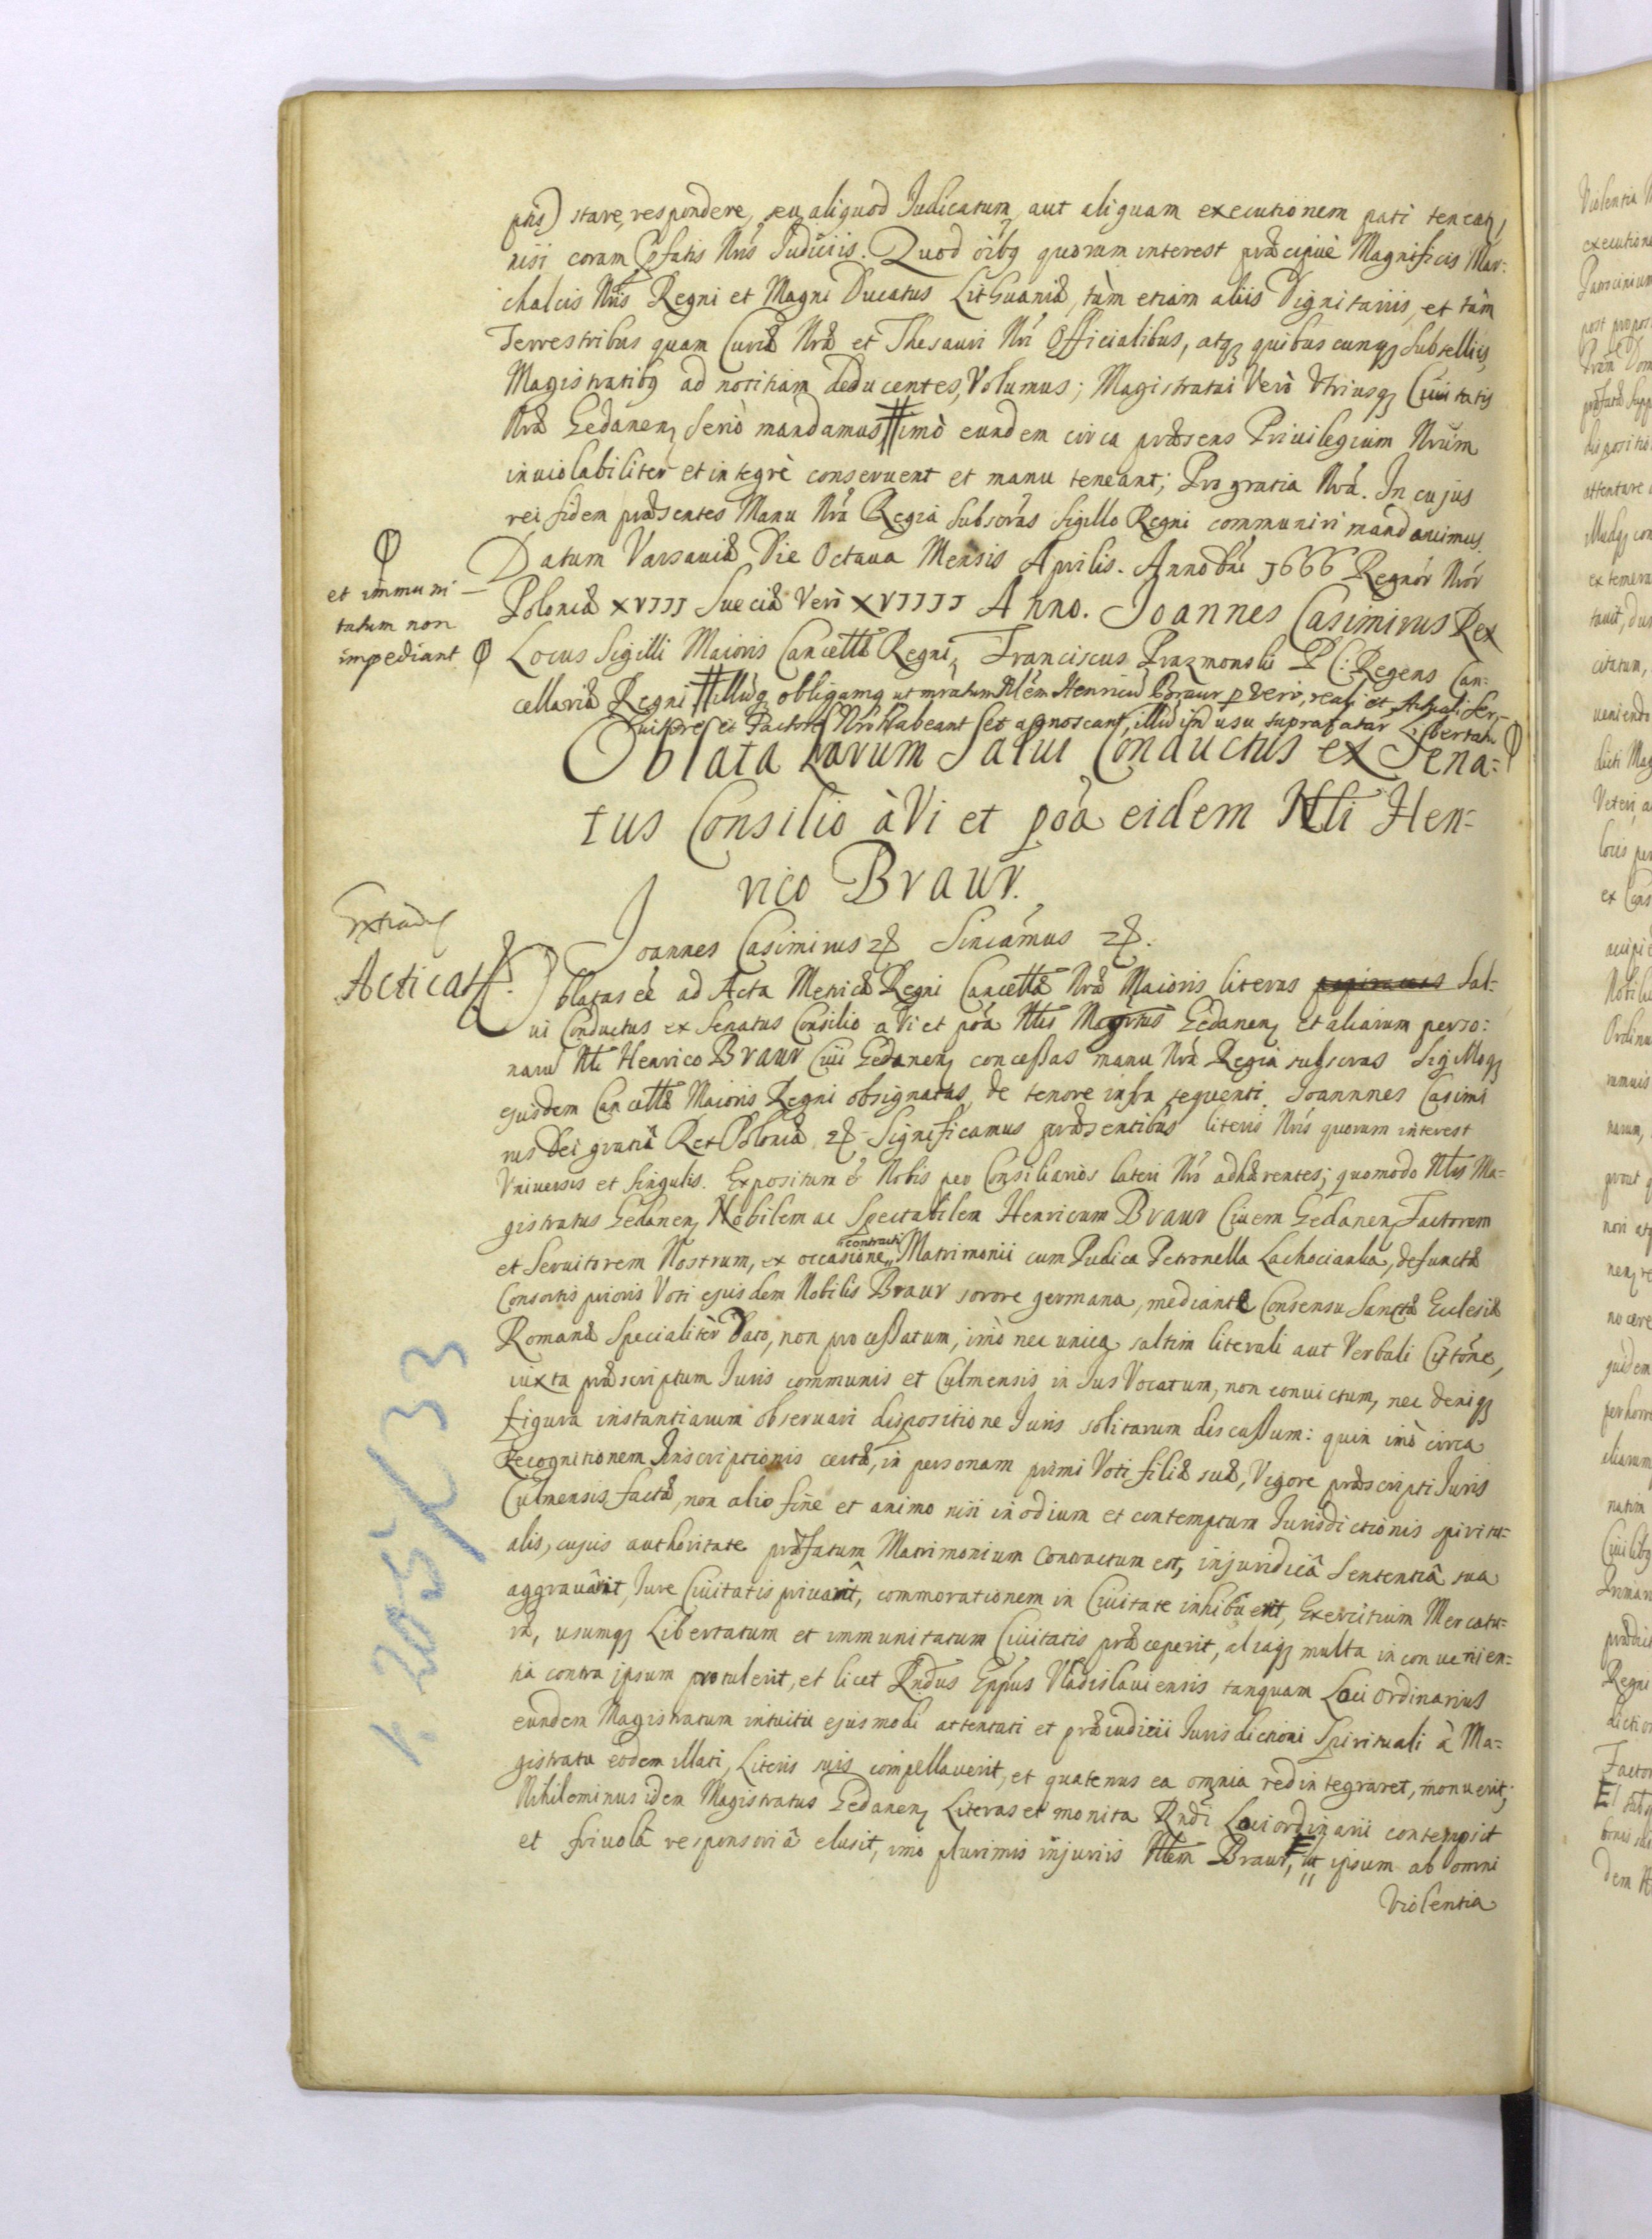 pns) stare, respondere, seu aliquod Judicatum, aut aliquam executionem pati teneatr,
nisi coram Pfatis Nris Judiciis. Quod oibq quorum interest præcipuè Magnificis Mar:
chalcis Nris Regni et Magni Ducatus Lithuaniæ, tùm etiam aliis Dignitariis, et tàm
Terrestribus quam Curiæ Nræ et Thesauri Nri Officialibus, atq quibuscunq Subselliis,
Magistratibq ad notitiam deducentes, Volumus; Magistratui Verò Vtriusq Ciuitatis
Nræ Gedanen, seriò mandamus # imò eundem circa præsens Priuilegium Nrum
inuiolabiliter et integrè conseruent et manu teneant; Pro gratia Nra. In cujus
rei fidem præsentes Manu Nra Regia Subscras Sigillo Regni communiri mandauimus.
Datum Varsauiæ Die Octaua Mensis Aprilis. Anno Dni 1666 Regnor Nror
et immuni
tatum non
impediant
Poloniæ XVIII Sueciæ Verò XVIIII Anno. Joannes Casimirus Rex
Locus Sigilli Maioris Cancellæ Regni, Franciscus Prazmonski P C: Regens Can:
cellariæ Regni # illudq obligamq ut mratum Nlem Henricu Braur p Vero, reali et Actuali Ser,
uitore et Factore Nro habeant et agnoscant, illud in usu suprafatar Libertatu
Oblata Larum Salui Conductus ex Sena:
tus Consilio à Vi et poã eidem Nli Hen:
rico Braur.
Joannes Casimirus Sinicamus
Acticat
Oblatas eè ad Acta Metricæ Regni Cancellæ Nræ Maioris literas Sal:
ui Conductus ex Senatus Consilio à Vi et poã Nlis Mgrtus Gedanen, et aliarum perso:
naru Nli Henrico Braur Ciui Gedanen, concessas manu Nra Regia subscras Sigilloq
ejusdem Cancellæ Maioris Regni obsignatas, de tenore infra sequenti. Joannnes Casimi
rus Dei gratiâ Rex Poloniæ Significamus præsentibus literis Nris quorum interest
Vniuersis et singulis. Expositum è Nobis per Consiliarios lateri Nro adhærentes; quomodo Nlis Ma:
gistratus Gedanen, Nobilem ac Spectabilem Henricum Braur Ciuem Gedanen, Factorem
et Seruitorem Nostrum, ex occasione contracti Matrimonii cum Pudica Petronella Lachocianka, defunctæ
Consortis prioris Voti ejusdem Nobilis Braur sorore germana, mediante Consensu Sanctæ Ecclesiæ
Romanæ Specialitèr Dato, non processatum, imò nec unica saltim literali aut Verbali Citatione,
iuxta præscriptum Iuris communis et Culmensis in Ius Vocatum, non conuictum, nec deniq
figura instantiarum obseruari dispositione Iuris solitarum discussum: quin imò circa
Recognitionem Inscriptionis certæ, in personam primi Voti filiæ suæ, Vigore præscripti Iuris
Culmensis factæ, non alio fine et animo nisi in odium et contemptum Iurisdictionis spiritu:
alis, cujus authoritate præfatum Matrimonium contractum est, injuridicâ Sententiâ sua
aggrauârit, Iure Ciuitatis priuarit, commorationem in Ciuitate inhibuerit, Exercitium Mercatu:
ræ, usumq Libertatum et immunitatum Ciuitatis præceperit, aliaq multa inconuenien:
tia contra ipsum protulerit, et licet Rndus Eppus Vladislauiensis tanquam Loci Ordinarius
eundem Magistratum intuitu ejusmodi attentati et præiudicii Iurisdictioni Spirituali à Ma:
gistratu eodem illati, Literis suis compellauerit, et quatenus ea omnia redintegraret, monuerit;
Nihilominus idem Magistratus Gedanen, Literas et monita Rndi Loci ordinarii contempsit
et friuolâ responsoriâ elusit, imò plurimis injuriis Nlem Braur, ut ipsum ab omni
Violentia